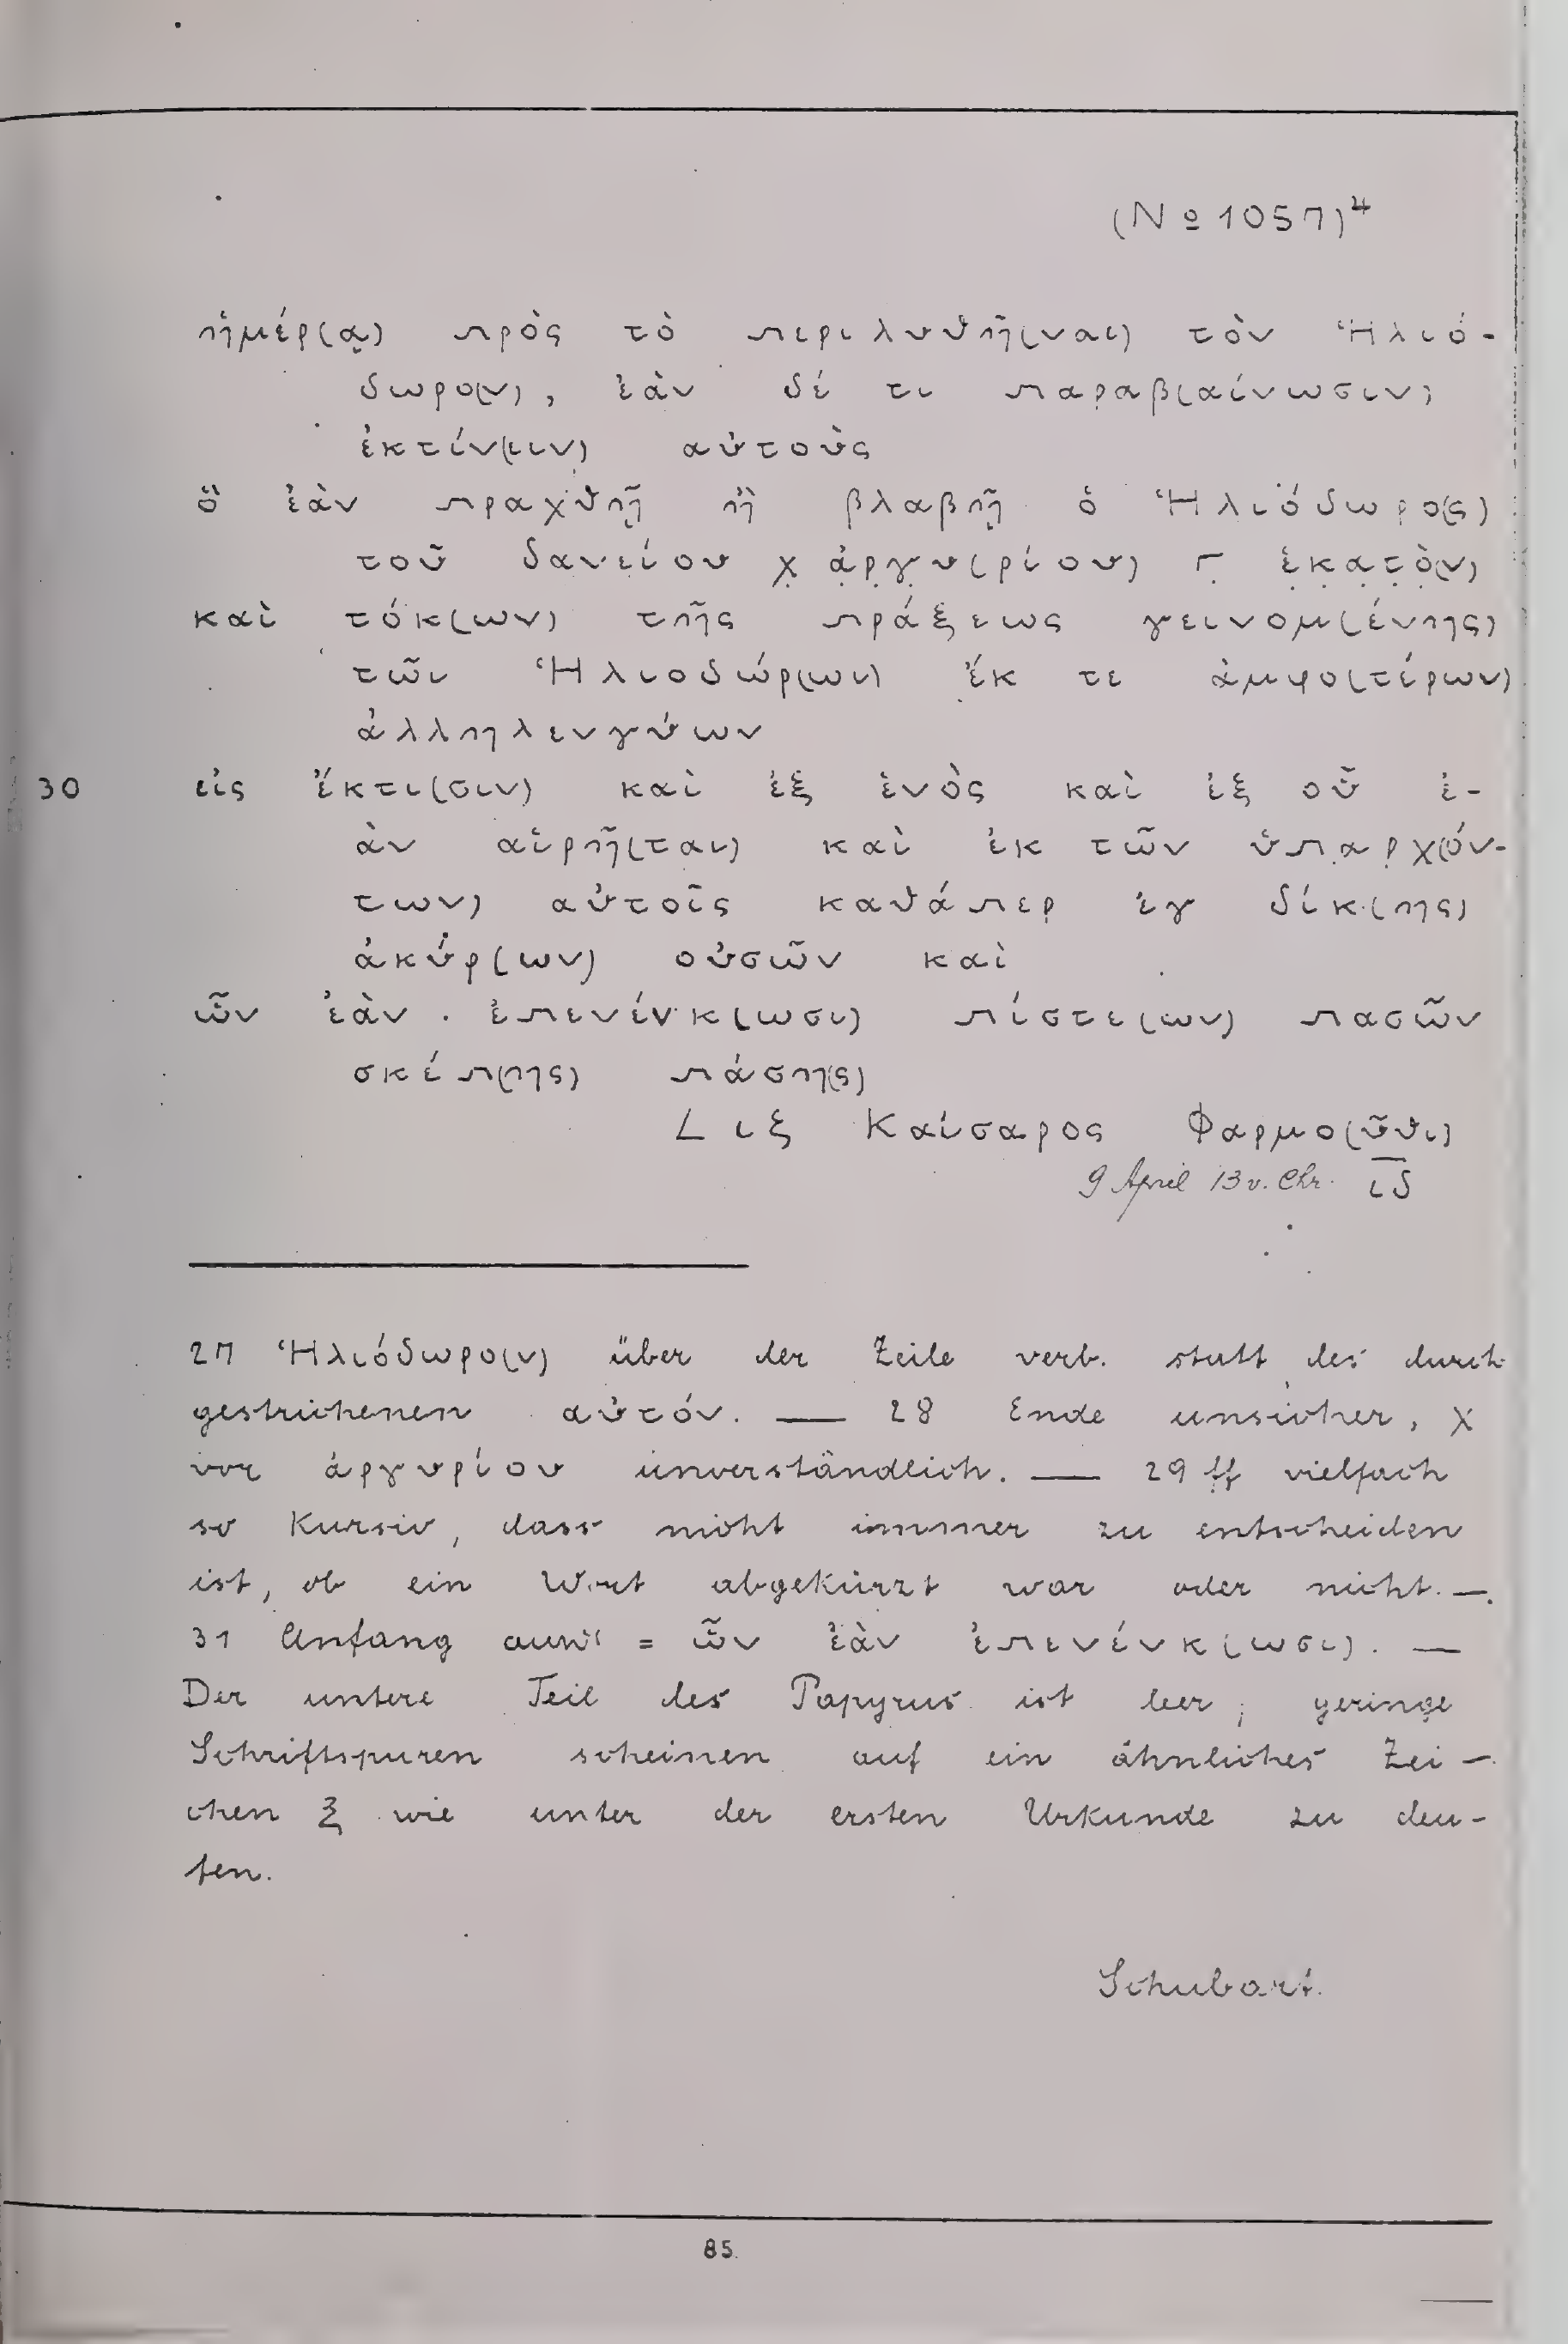 (№ 1057)⁴
ἡμέρ(ᾳ) πρὸς τὸ περιλυθῆ(ναι) τὸν Ἡλιό-
δωρο(ν), ἐὰν δέ τι παραβ(αίνωσιν)
ἐκτίν(ειν) αὐτοὺς
ὃ ἐὰν πραχθῇ ἢ βλαβῇ ὁ Ἡλιόδωρο(ς)
τοῦ δανείου χ ἀ̣ρ̣γ̣υ(ρίου) Γ̣ ἑ̣κ̣α̣τ̣ὸ̣(ν)
καὶ τόκ(ων) τῆς πράξεως γεινομ(ένης)
τῶι Ἡλιοδώρ(ωι) ἔκ τε ἀμφο(τέρων)
ἀλληλενγύων
30 εἰς ἔκτι(σιν) καὶ ἐξ ἑνὸς καὶ ἐξ οὗ ἐ-
ὰν αἱρῆ(ται) καὶ ἐκ τῶν ὑπ̣α̣ρ̣χ(όν-
των) αὐτοῖς καθάπερ ἐγ δίκ(ης)
ἀκύρ(ων) οὐσῶν καὶ
ὧν ἐὰν ἐπενένκ(ωσι) πίστε(ων) πασῶν
σκέπ(ης) πάση(ς)
L ιξ Καίσαρος Φαρμο(ῦθι)
9 April 13 v. Chr. ῑδ̄
27 Ἡλιόδωρο(ν) über der Zeile verb. statt des durch
gestrichenen αὐτόν. — 28 Ende unsicher, χ
vor ἀργυρίου unverständlich. — 29 ff vielfach
so Kursiv, dass nicht immer zu entscheiden
ist, ob ein Wort abgekürzt war oder nicht. —
31 Anfang = ὧν ἐὰν ἐπενένκ(ωσι). —
Der untere Teil des Papyrus ist leer; geringe
Schriftspuren scheinen auf ein ähnliches Zei-
chen ξ wie unter der ersten Urkunde zu deu-
ten.
Schubart.
85.